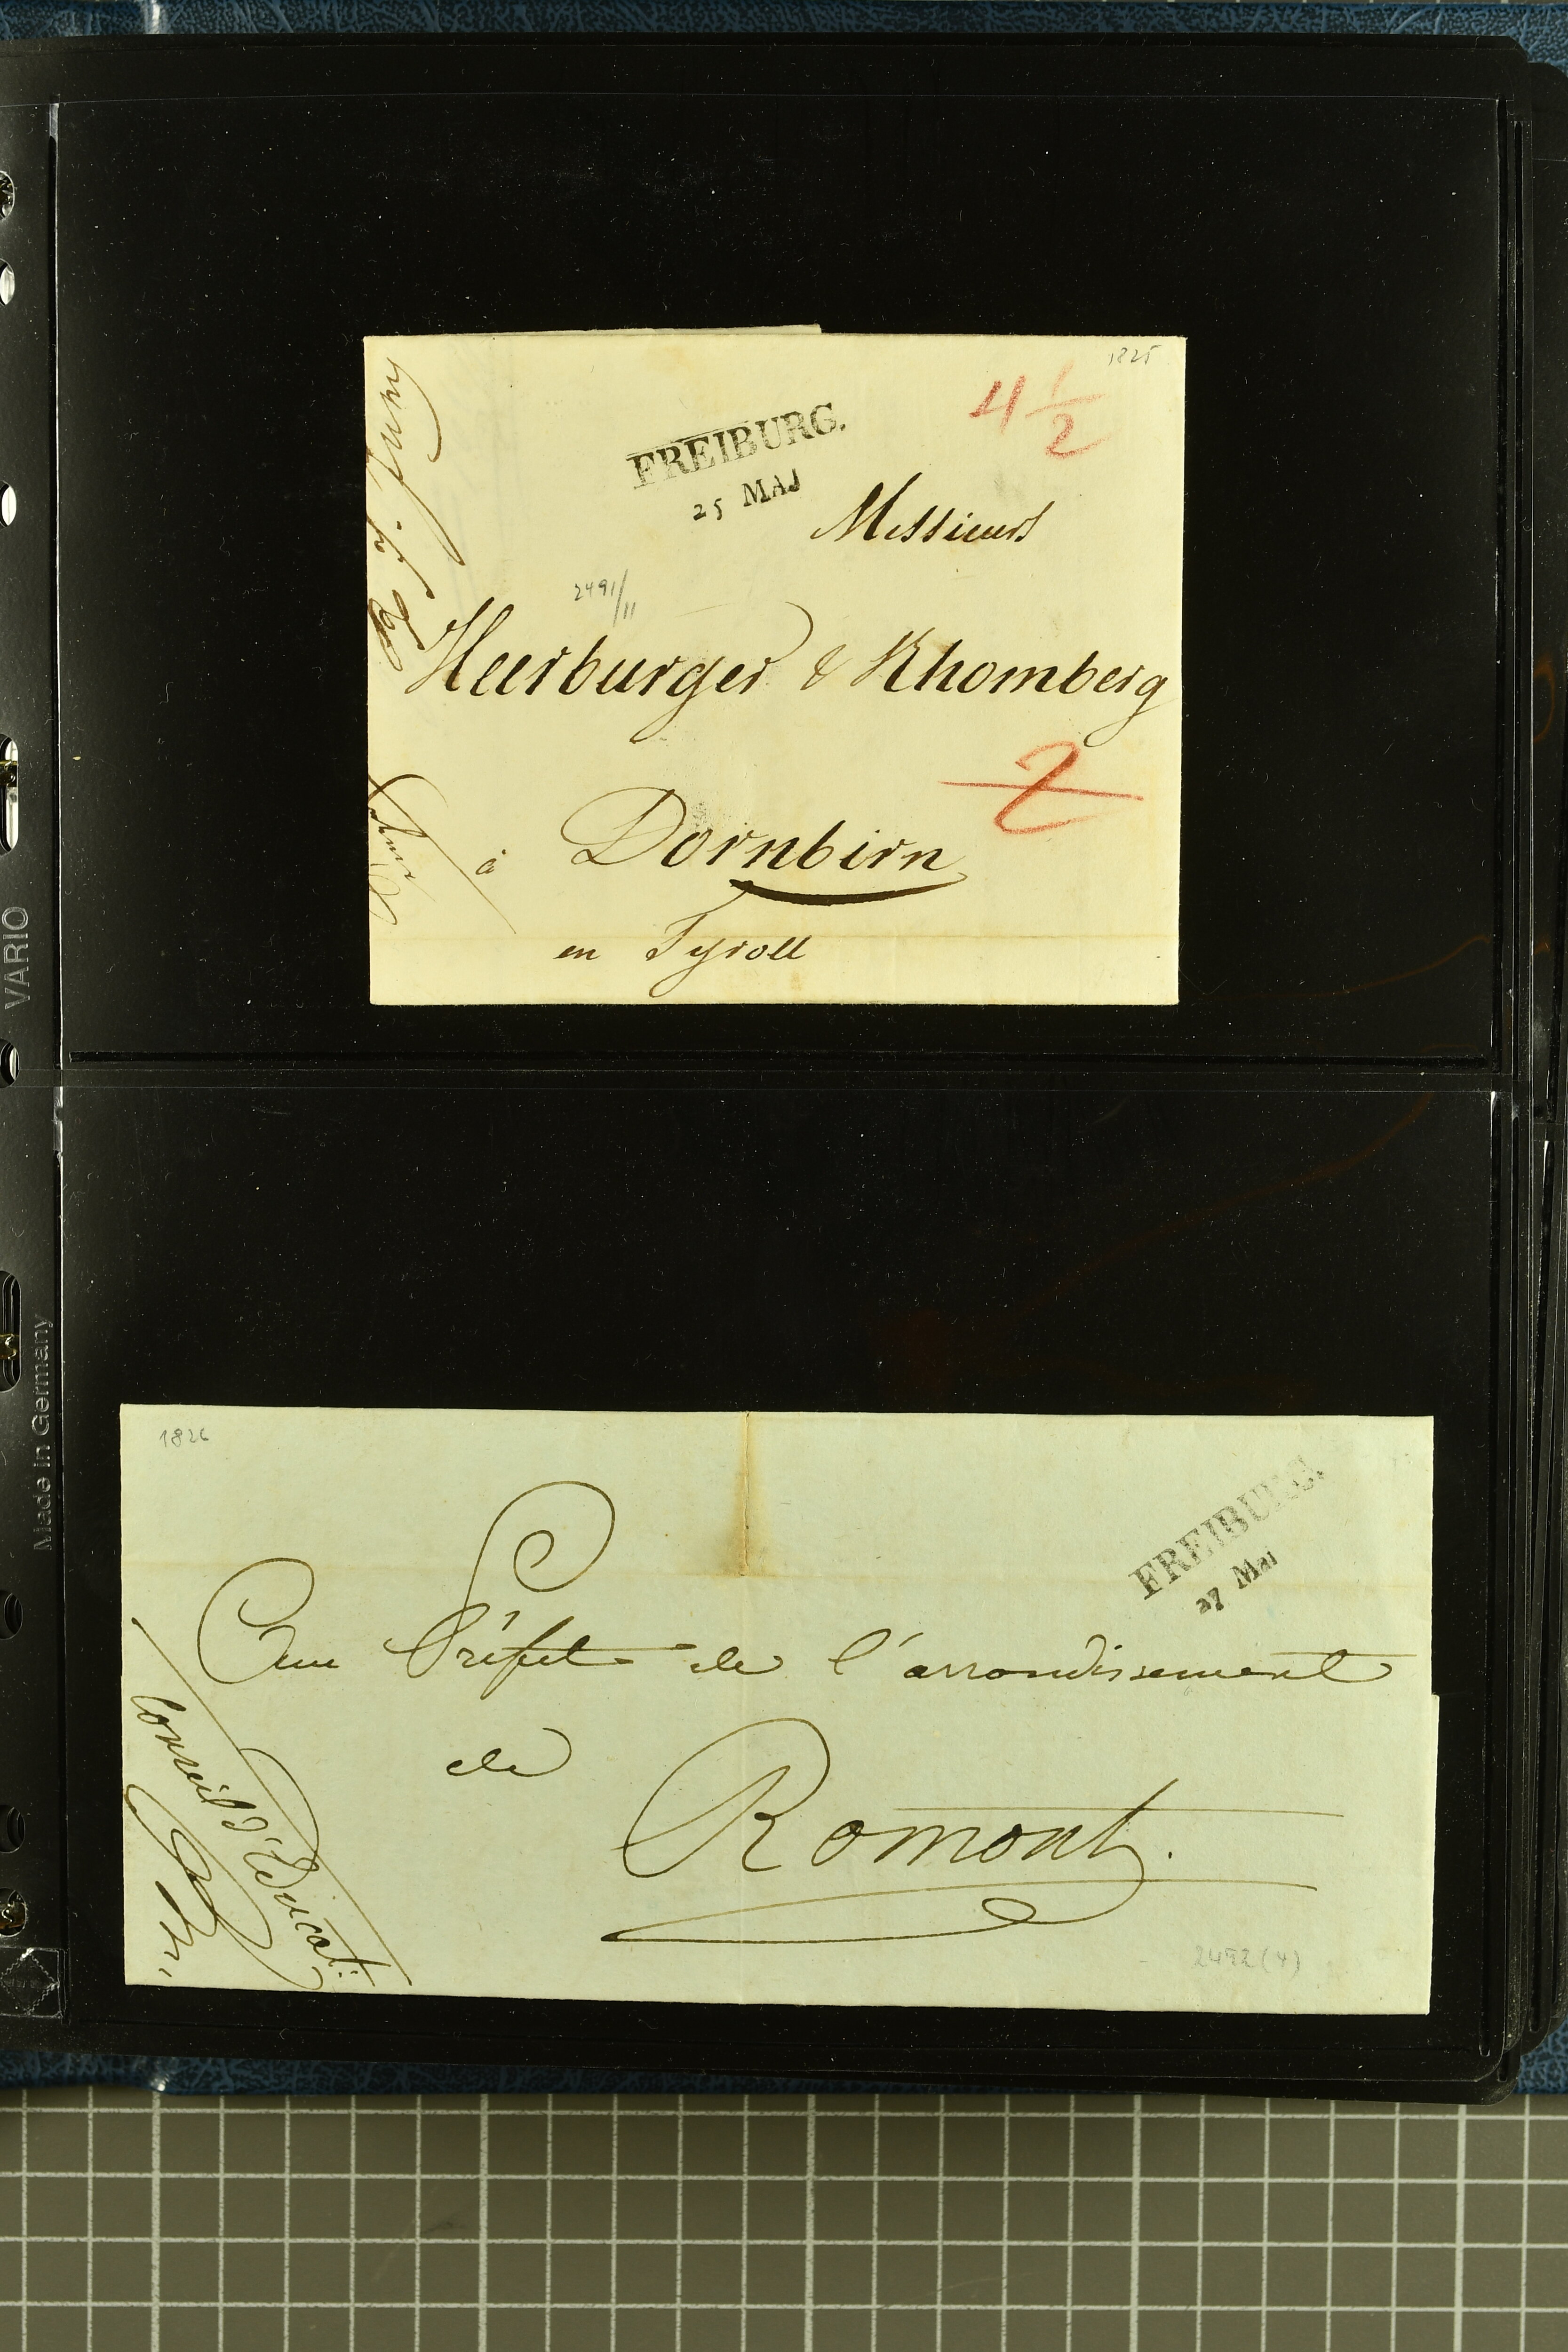 1825
4 1/2
FREIBURG.
25 MAJ
Messieurs
2491/11
Heerburger & Rhomberg
2
à Dornbirn
en Tyroll
franc
VARIO
Made in Germany
1826
FREIBURG.
27 Mai
Au Préfet de l'arrondissement
de
Romont.
Conseil d'Educat:
2492 (4)